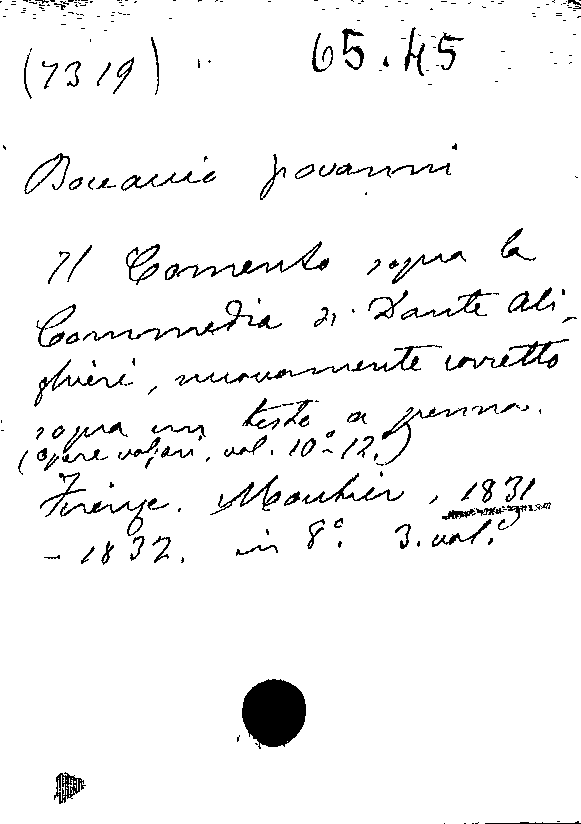 (7319) 65.45
Boccaccio Giovanni
Il Comento sopra la
Commedia di Dante Ali-
ghieri, nuovamente corretto
sopra un testo a penna.
(Opere volgari, vol. 10º-12º)
Firenze. Moutier, 1831
- 1832. in 8º. 3. vol.